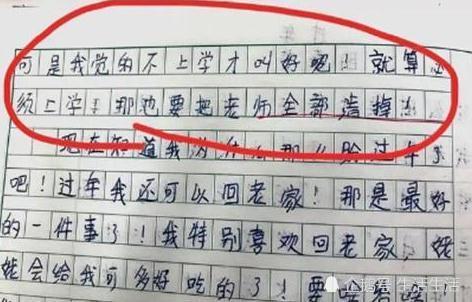 可是我觉的不上学才叫好呢！就算必
须上学！那也要把老师全部掉！
现在知道我为什么那么盼过年了
吧！过年我还可以回老家！那是最好
的一件事了！我特别喜欢回老家，姥
姥会给我可多好吃的了！要
企鹅号 生活生活